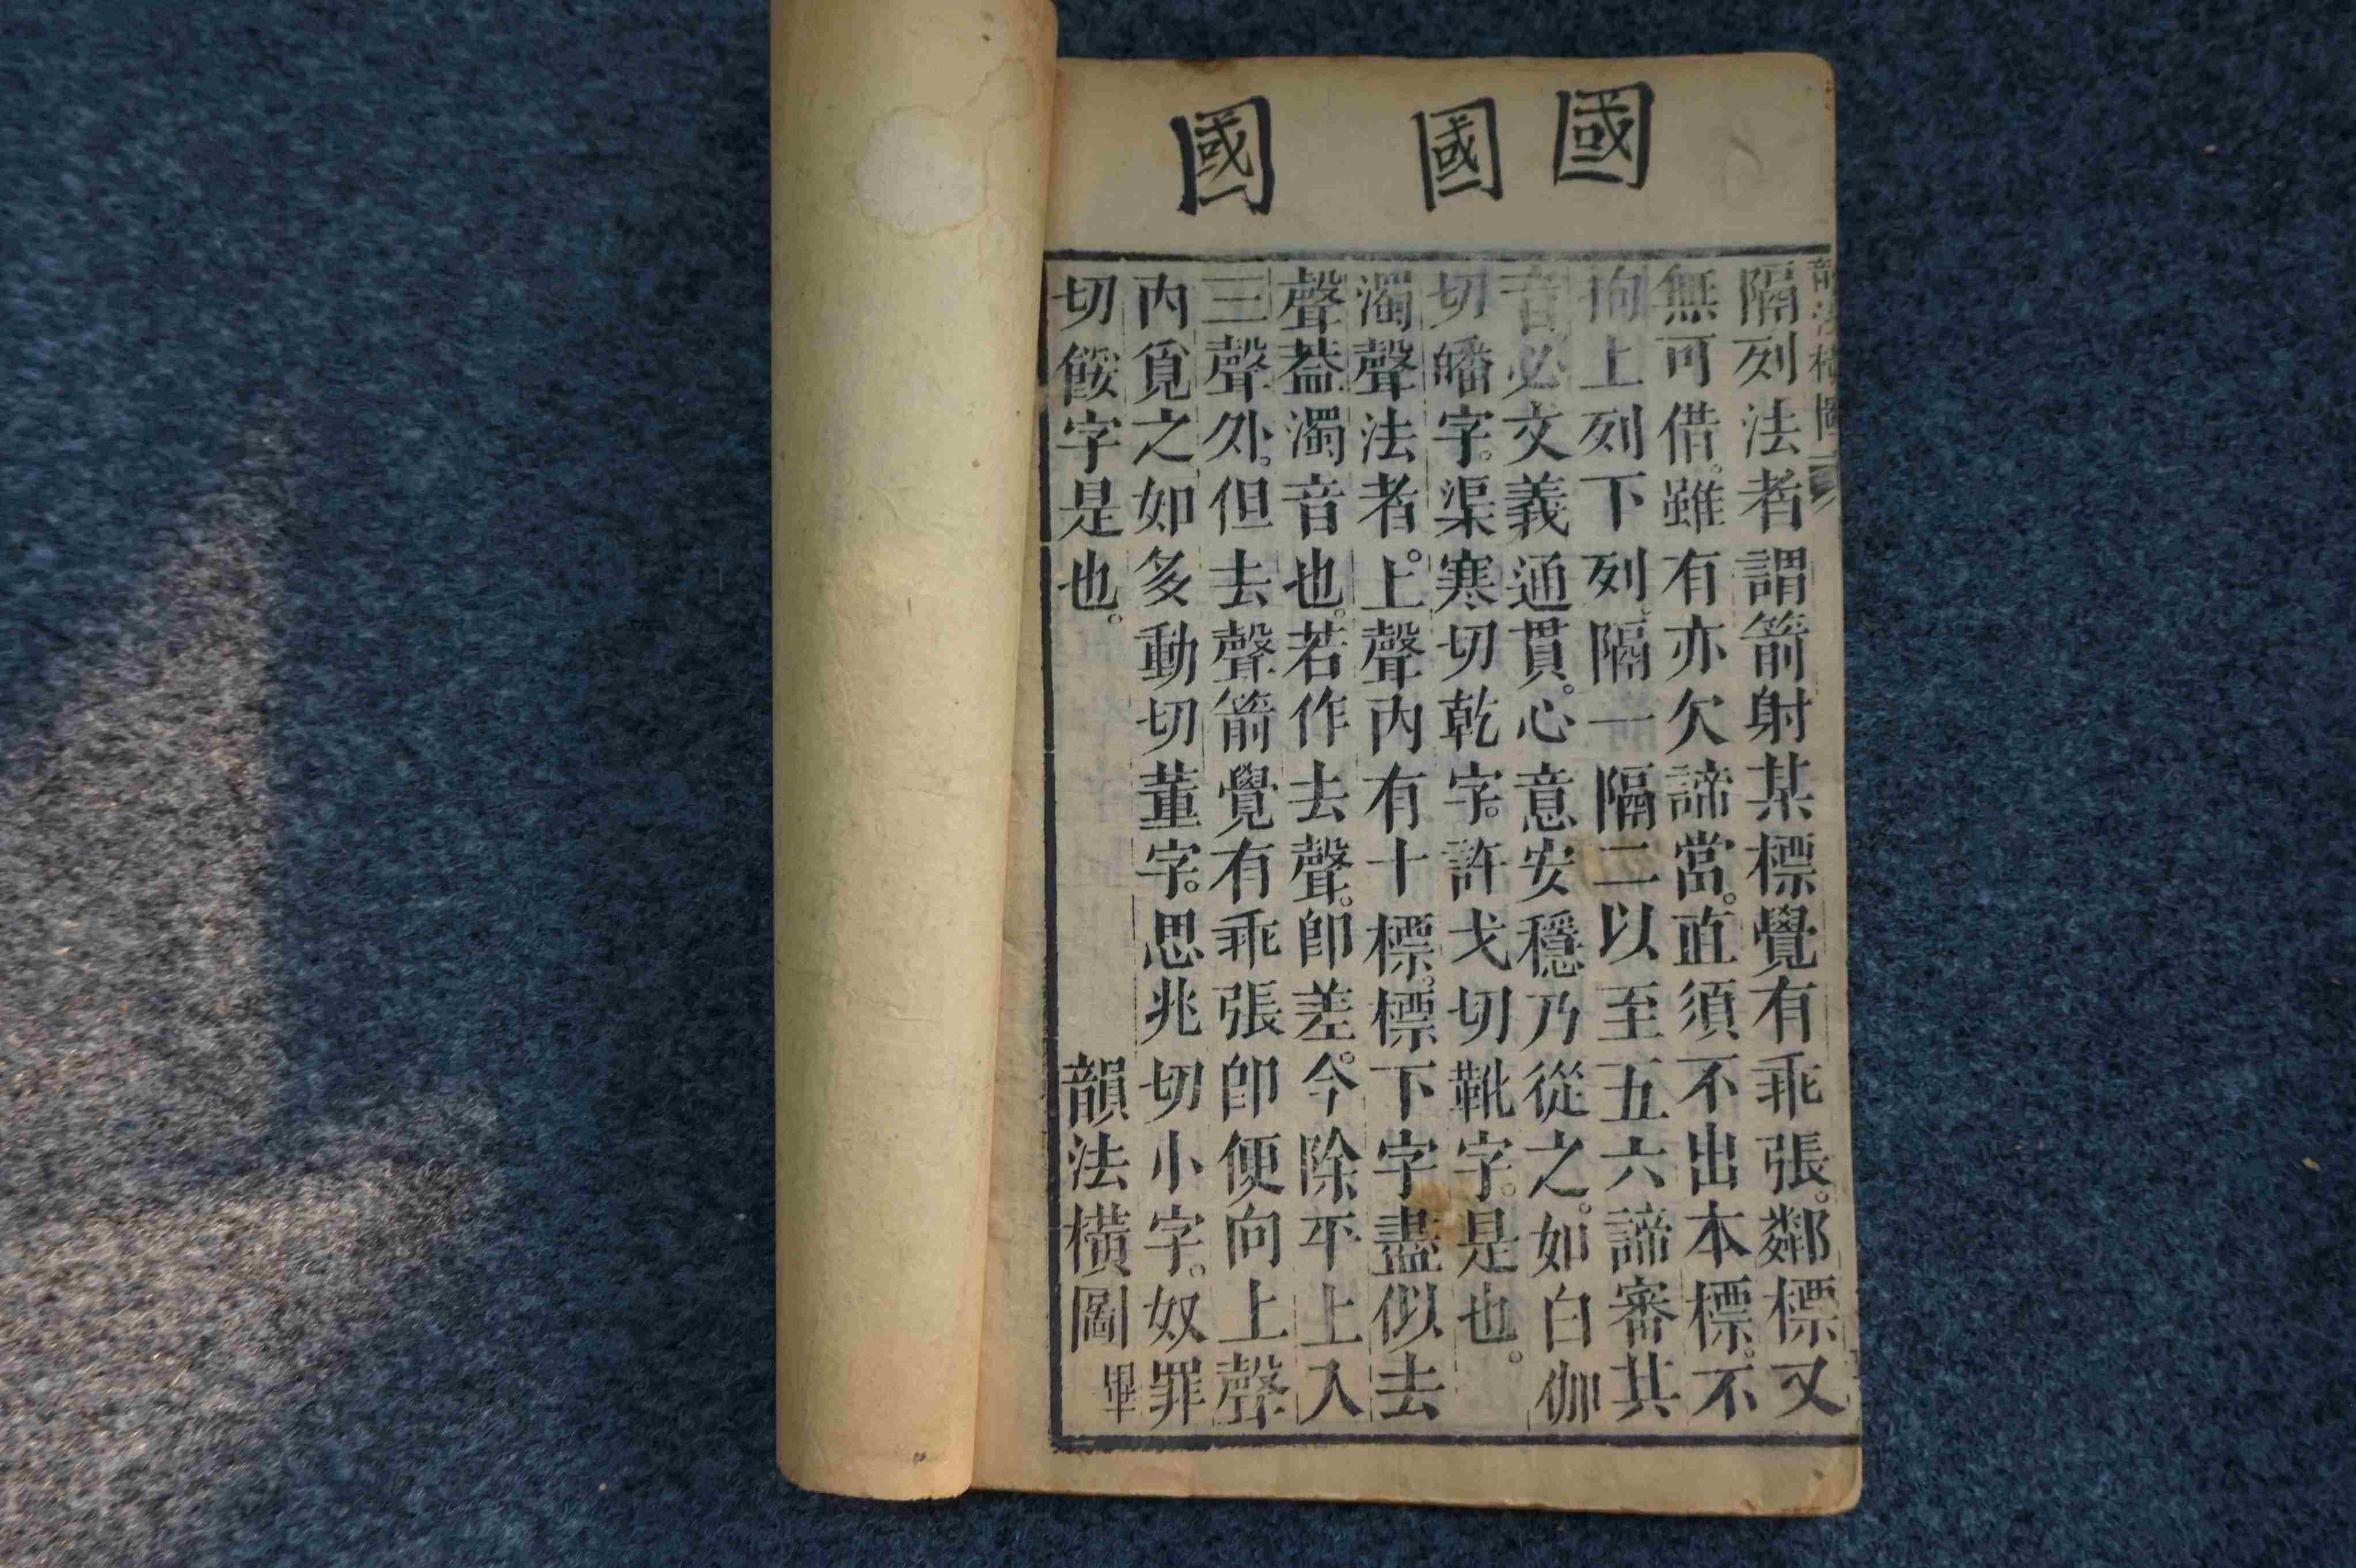 國 國 國
隔列法者謂箭射某標覺有乖張。鄰標又
無可借。雖有亦欠諦當。直須不出本標。不
拘上列下列。隔一隔二以至五六諦審其
音必文義通貫。心意安穩乃從之。如白伽
切皤字。渠寒切乾字。許戈切靴字。是也。
濁聲法者。上聲內有十標。標下字盡似去
聲葢濁音也。若作去聲。卽差。今除平上入
三聲外。但去聲箭覺有乖張卽便向上聲
內覓之如多動切董字。思兆切小字。奴罪
切餒字是也。 韻法橫圖畢